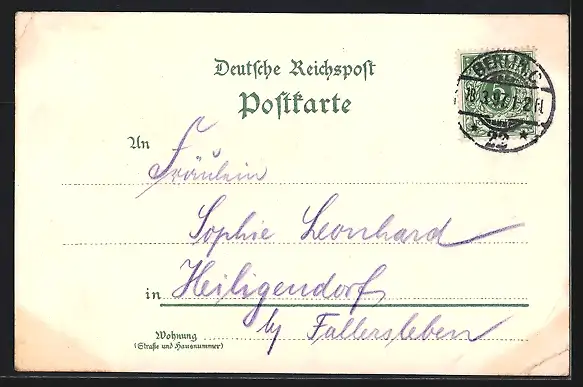 Deutsche Reichspost
Postkarte
BERLIN, C.
18.3.97. 1-2 N.
* 22 *
An
Fräulein
Sophie Leonhard
in Heiligendorf
by Fallersleben
Wohnung
(Straße und Hausnummer)